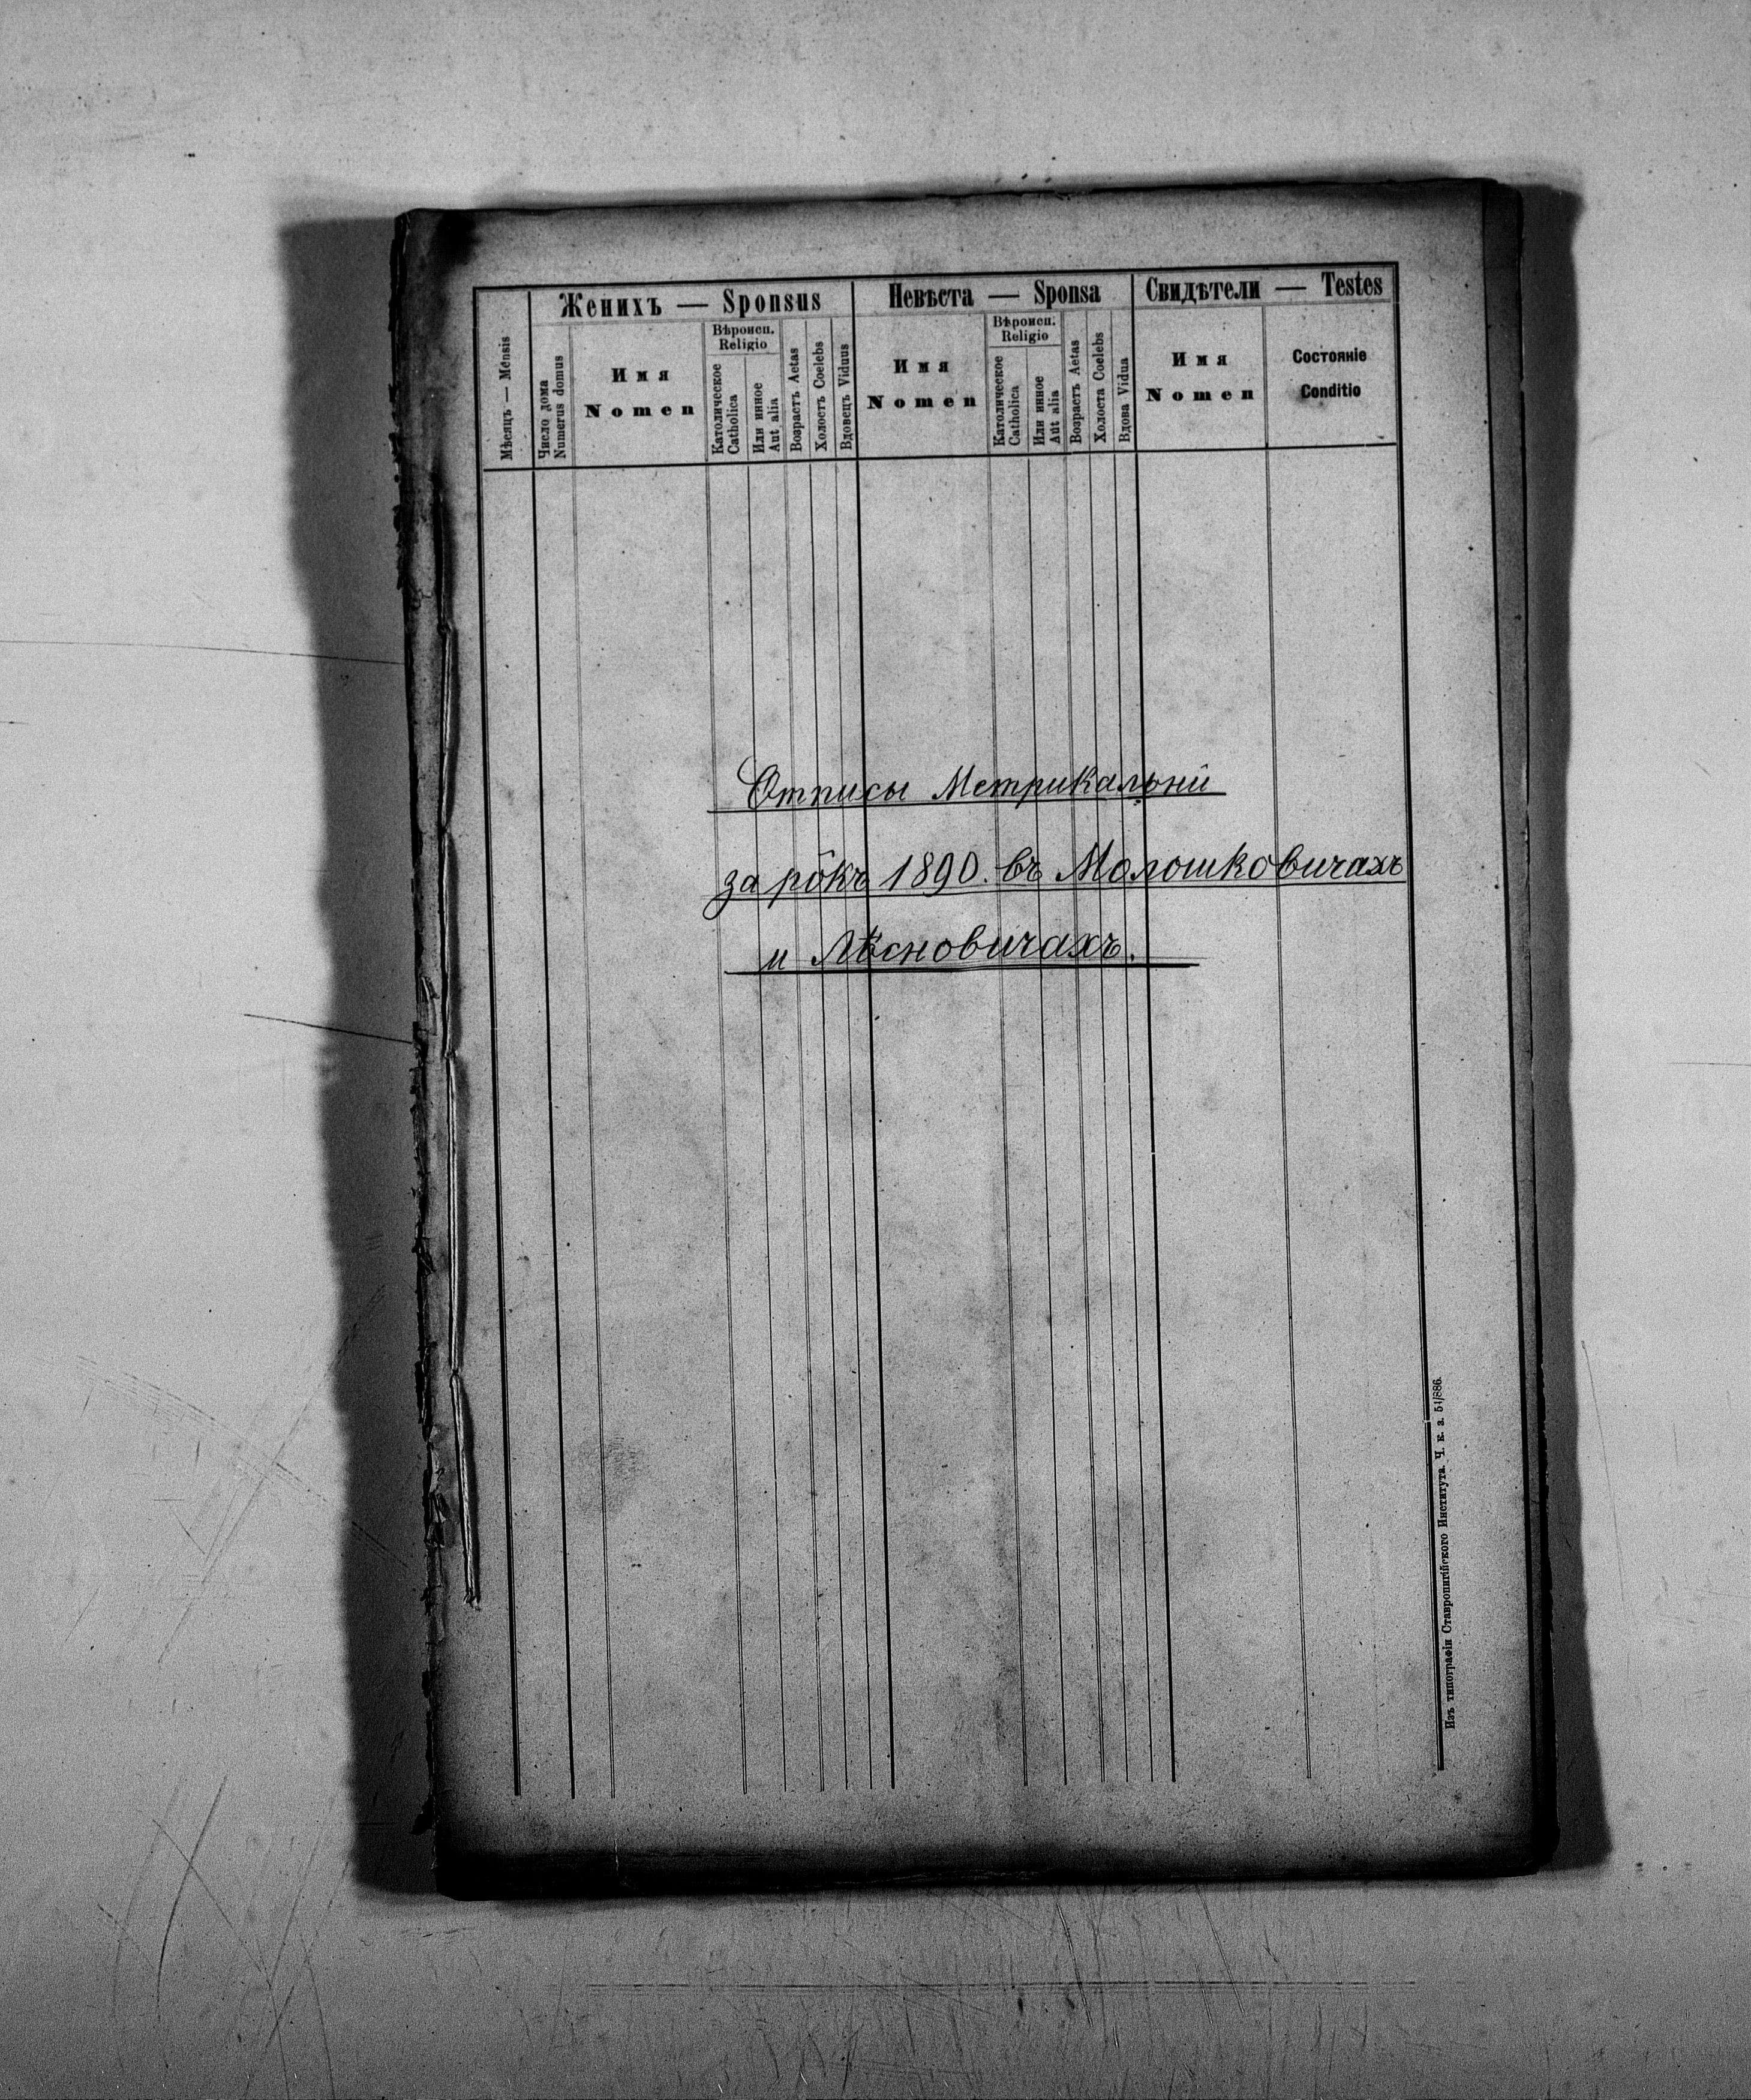 Женихъ — Sponsus
Невѣста — Sponsa
Свидѣтели — Testes
Мѣсяцъ — Mensis
Число дома
Numerus domus
Имя
Nomen
Вѣроисп.
Religio
Католическое
Catholica
Или инное
Aut alia
Возрастъ Aetas
Холостъ Coelebs
Вдовецъ Viduus
Имя
Nomen
Вѣроисп.
Religio
Католическое
Catholica
Или инное
Aut alia
Возрастъ Aetas
Холоста Coelebs
Вдова Vidua
Имя
Nomen
Состояніе
Conditio
Отписы Метрикальнй
за рôкъ 1890. въ Молошковичахъ
и Лѣсновичахъ.
Изъ типографіи Ставропигійского Института. Ч. к. з. 51/886.